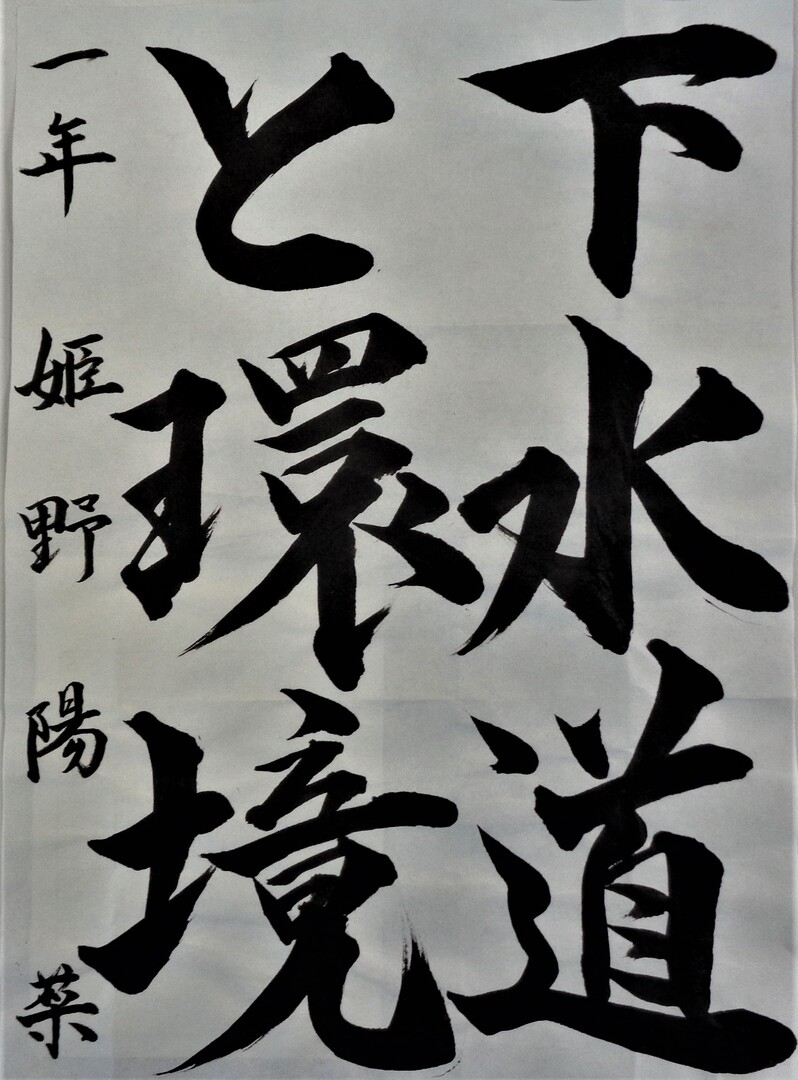 下水道
と環境
一年 姫野陽菜